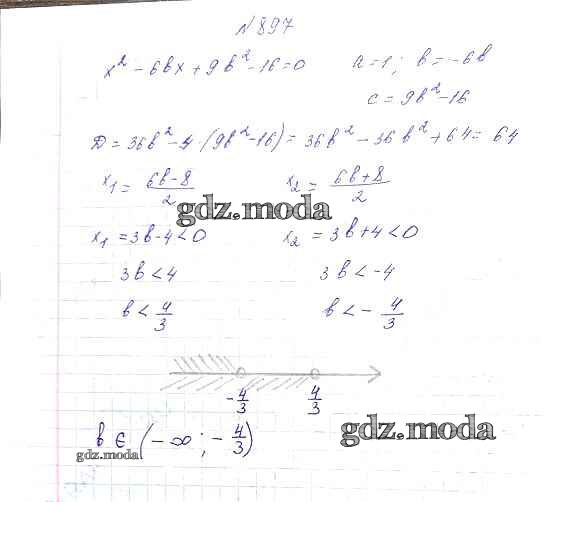 № 897
x² - 6bx + 9b² - 16 = 0   a = 1; b = -6b
c = 9b² - 16
D = 36b² - 4(9b² - 16) = 36b² - 36b² + 64 = 64
x₁ = (6b - 8)/2   x₂ = (6b + 8)/2
gdz.moda
x₁ = 3b - 4 < 0   x₂ = 3b + 4 < 0
3b < 4   3b < -4
b < 4/3   b < - 4/3
-4/3   4/3
b ∈ (-∞; -4/3)
gdz.moda
gdz.moda